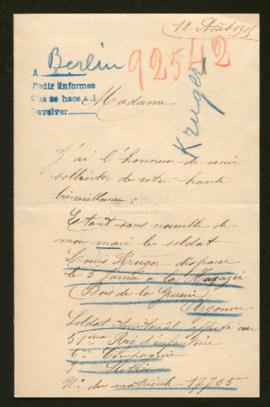 12 Août 1915
Berlin
A
Pedir informes
Que se hace a i
Devolver
92542
Kruger
Madame
J'ai l'honneur de venir
solliciter de votre haute
bienveillance.
Etant sans nouvelle de
mon mari le soldat
Louis Kruger disparu
le 5 à la
(Bois de la Grurie)
Argonne
Soldat territorial affecté au
51ème Rég d'infanterie
6e Compagnie
Section
No de matricule 17705